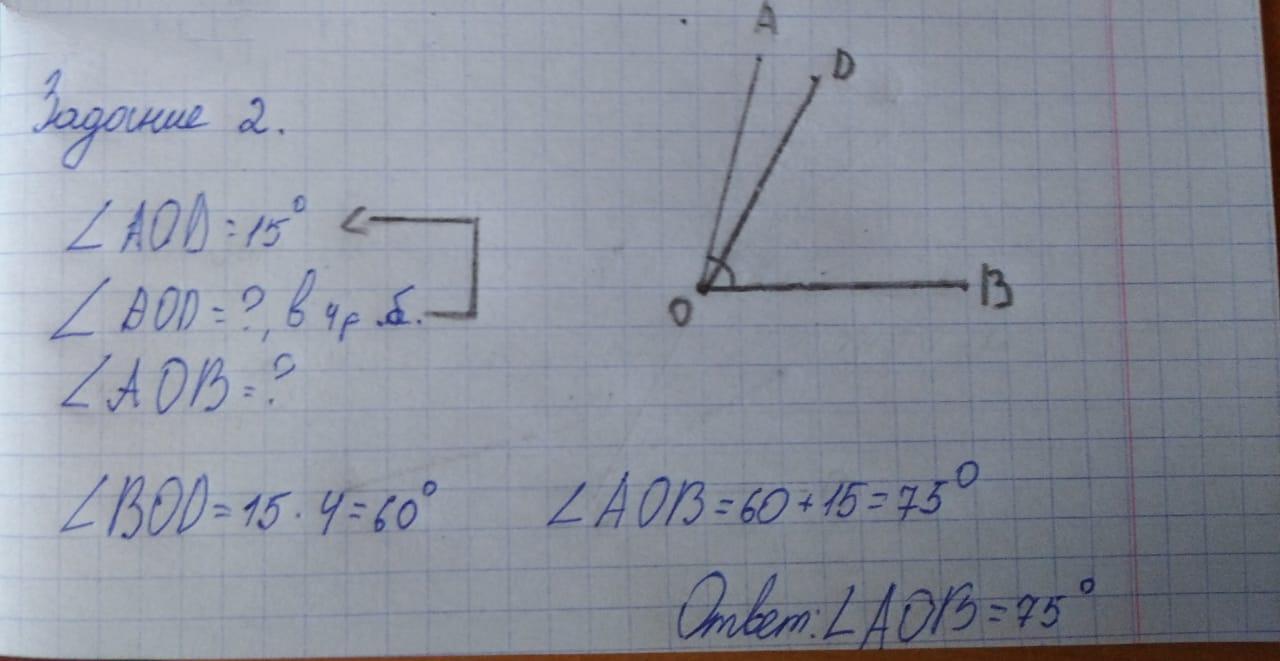 Задание 2.
A
D
∠AOD = 15°
∠BOD = ?, в 4 р. б.
O
B
∠AOB = ?
∠BOD = 15 · 4 = 60°
∠AOB = 60 + 15 = 75°
Ответ: ∠AOB = 75°